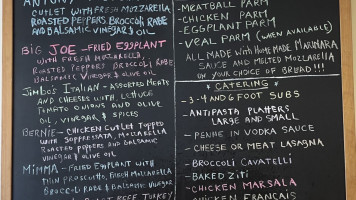 ANTONY
CUTLET WITH FRESH MOZZARELLA
ROASTED PEPPERS BROCCOLI RABE
AND BALSAMIC VINEGAR & OIL
BIG JOE - FRIED EGGPLANT
WITH FRESH MOZZARELLA,
ROASTED PEPPERS BROCCOLI RABE
BALSAMIC VINEGAR & OLIVE OIL
JIMBO'S ITALIAN - ASSORTED MEATS
AND CHEESES WITH LETTUCE
TOMATO ONIONS AND OLIVE
OIL, VINEGAR & SPICES
BERNIE - CHICKEN CUTLET TOPPED
WITH SOPPRESSATA, MOZZARELLA
ROASTED PEPPERS AND BALSAMIC
VINEGAR & OLIVE OIL
MIMMA - FRIED EGGPLANT WITH
THIN PROSCIUTTO, FRESH MOZZARELLA
BROCCOLI RABE & BALSAMIC VINEGAR
ROAST BEEF TURKEY
- MEATBALL PARM
- CHICKEN PARM
- EGGPLANT PARM
- VEAL PARM (WHEN AVAILABLE)
ALL MADE WITH HOME MADE MARINARA
SAUCE AND MELTED MOZZARELLA
ON YOUR CHOICE OF BREAD!!!
CATERING
- 3-4 AND 6 FOOT SUBS
- ANTIPASTA PLATTERS
LARGE AND SMALL
- PENNE IN VODKA SAUCE
- CHEESE OR MEAT LASAGNA
- BROCCOLI CAVATELLI
- BAKED ZITI
- CHICKEN MARSALA
- CHICKEN FRANCAIS